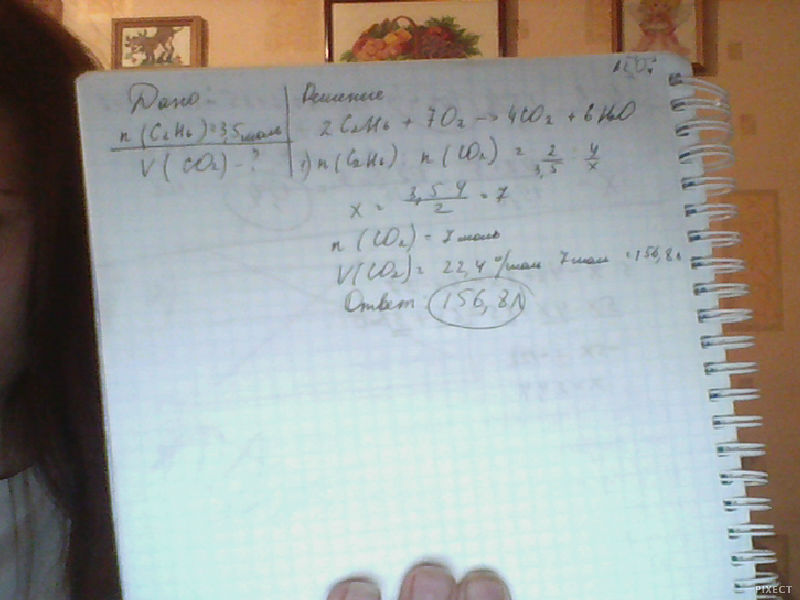 Дано
n(C2H6)=3,5моль
V(CO2)-?
Решение
2C2H6 + 7O2 -> 4CO2 + 6H2O
1) n(C2H6) : n(CO2) = 2/3,5 : 4/x
x = 3,5 4/2 = 7
n(CO2) = 7 моль
V(CO2) = 22,4 л/моль 7моль = 156,8л
Ответ 156,8л
PIXECT